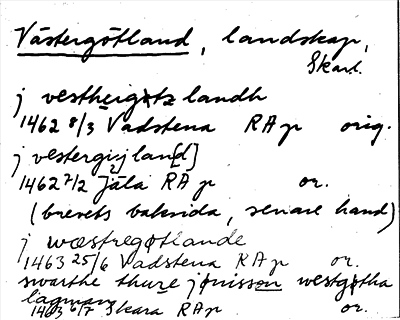 Västergötland, landskap,
Skarl.
j vestheigøtz landh
1462 8/3 Vadstena RA p orig.
j vestergiøjlan[d]
1462 7/2 Jäla RA p or.
(brevets baksida, senare hand)
j wæstregøtlande
1463 25/6 Vadstena RA p or.
swarthe thure jønisson westgøtha
lagman
1463 6/7 Skara RA p or.